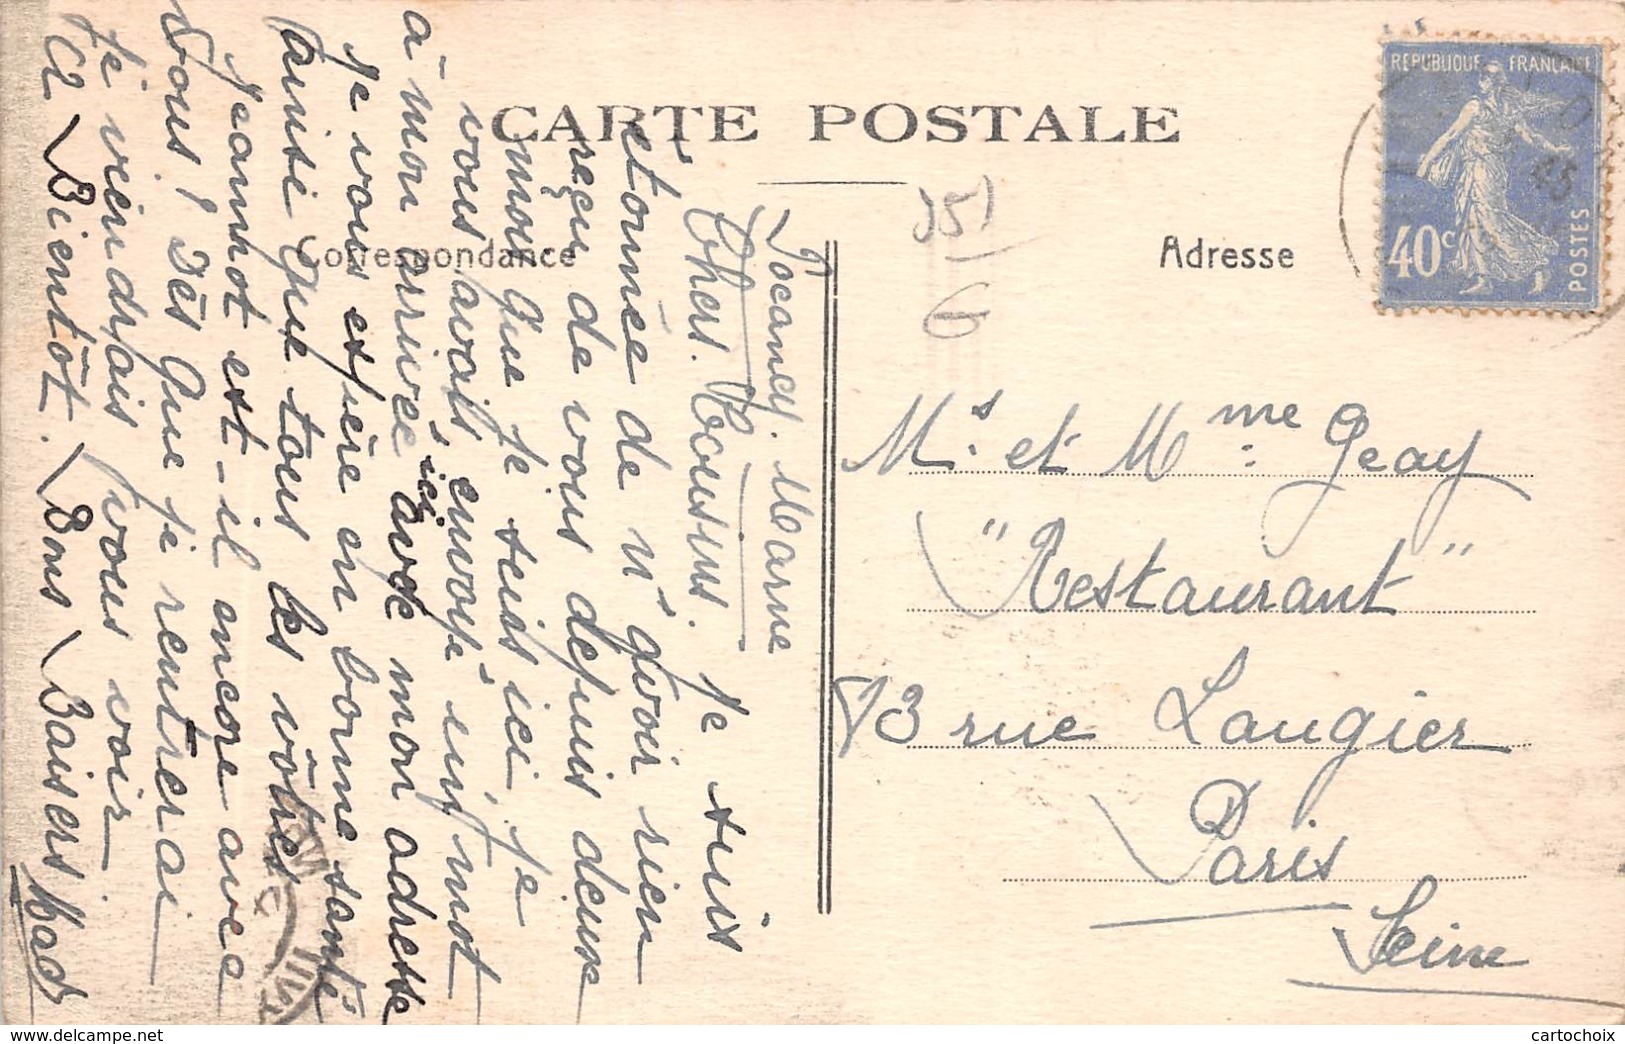 CARTE POSTALE
Correspondance
Adresse
RÉPUBLIQUE FRANÇAISE
40c
POSTES
351
G
Jocancy. Marne
Chers. Cousins. Je suis
étonnée de n'avoir rien
reçu de vous depuis deux
mois que je suis ici. je
vous avais envoyé un mot
à mon arrivée ici avec mon adresse
je vous espère en bonne santé
ainsi que tous les vôtres
Jeannot est-il encore avec
vous! Dès que je rentrerai
je viendrais vous voir.
A Bientôt. Bons Baisers Mad
Mr. et Mme Geay
"Restaurant"
73 rue Laugier
Paris
Seine
cartochoix